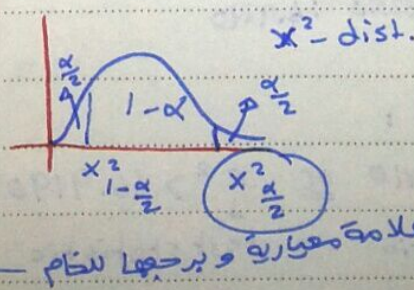 x² - dist.
α/2 1-α α/2
x²_{1-α/2} x²_{α/2}
علامة معيارية و برجعها للخام -